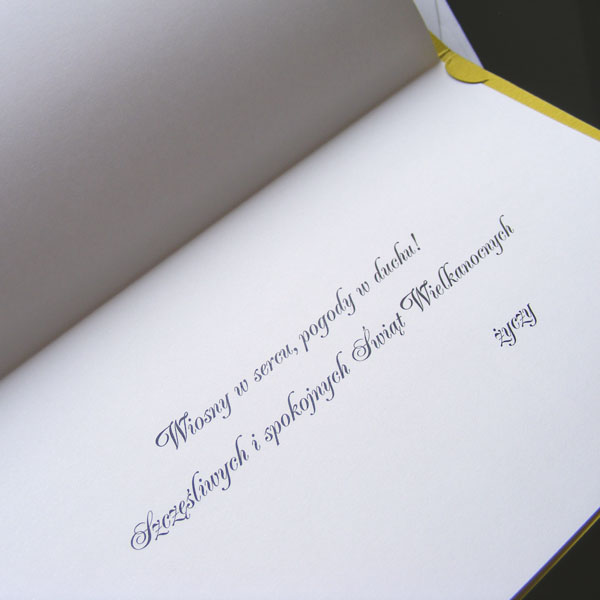 Wiosny w sercu, pogody w duchu!
Szczęśliwych i spokojnych Świąt Wielkanocnych
życzy